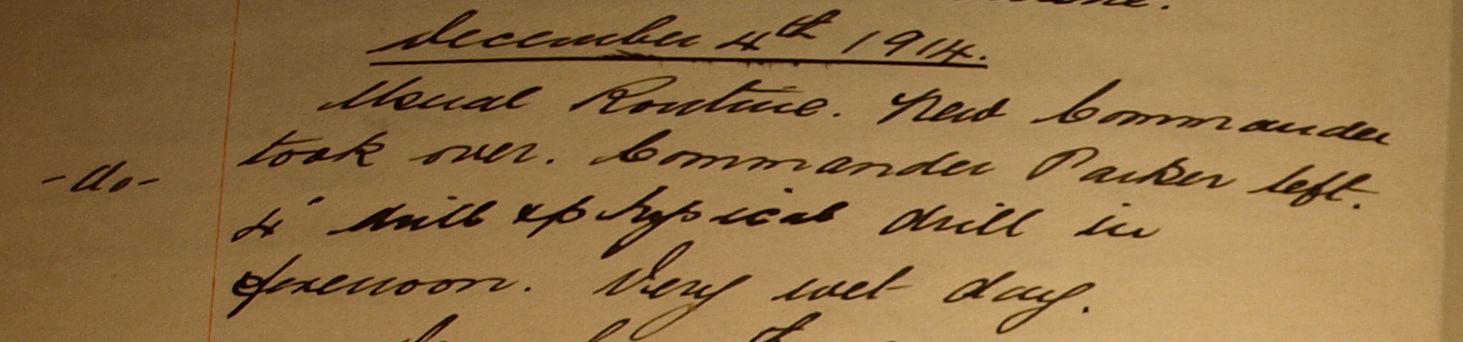 December 4th 1914.
Usual Routine. New Commander
took over. Commander Parker left.
-do-
4" drill & physical drill in
forenoon. Very wet day.